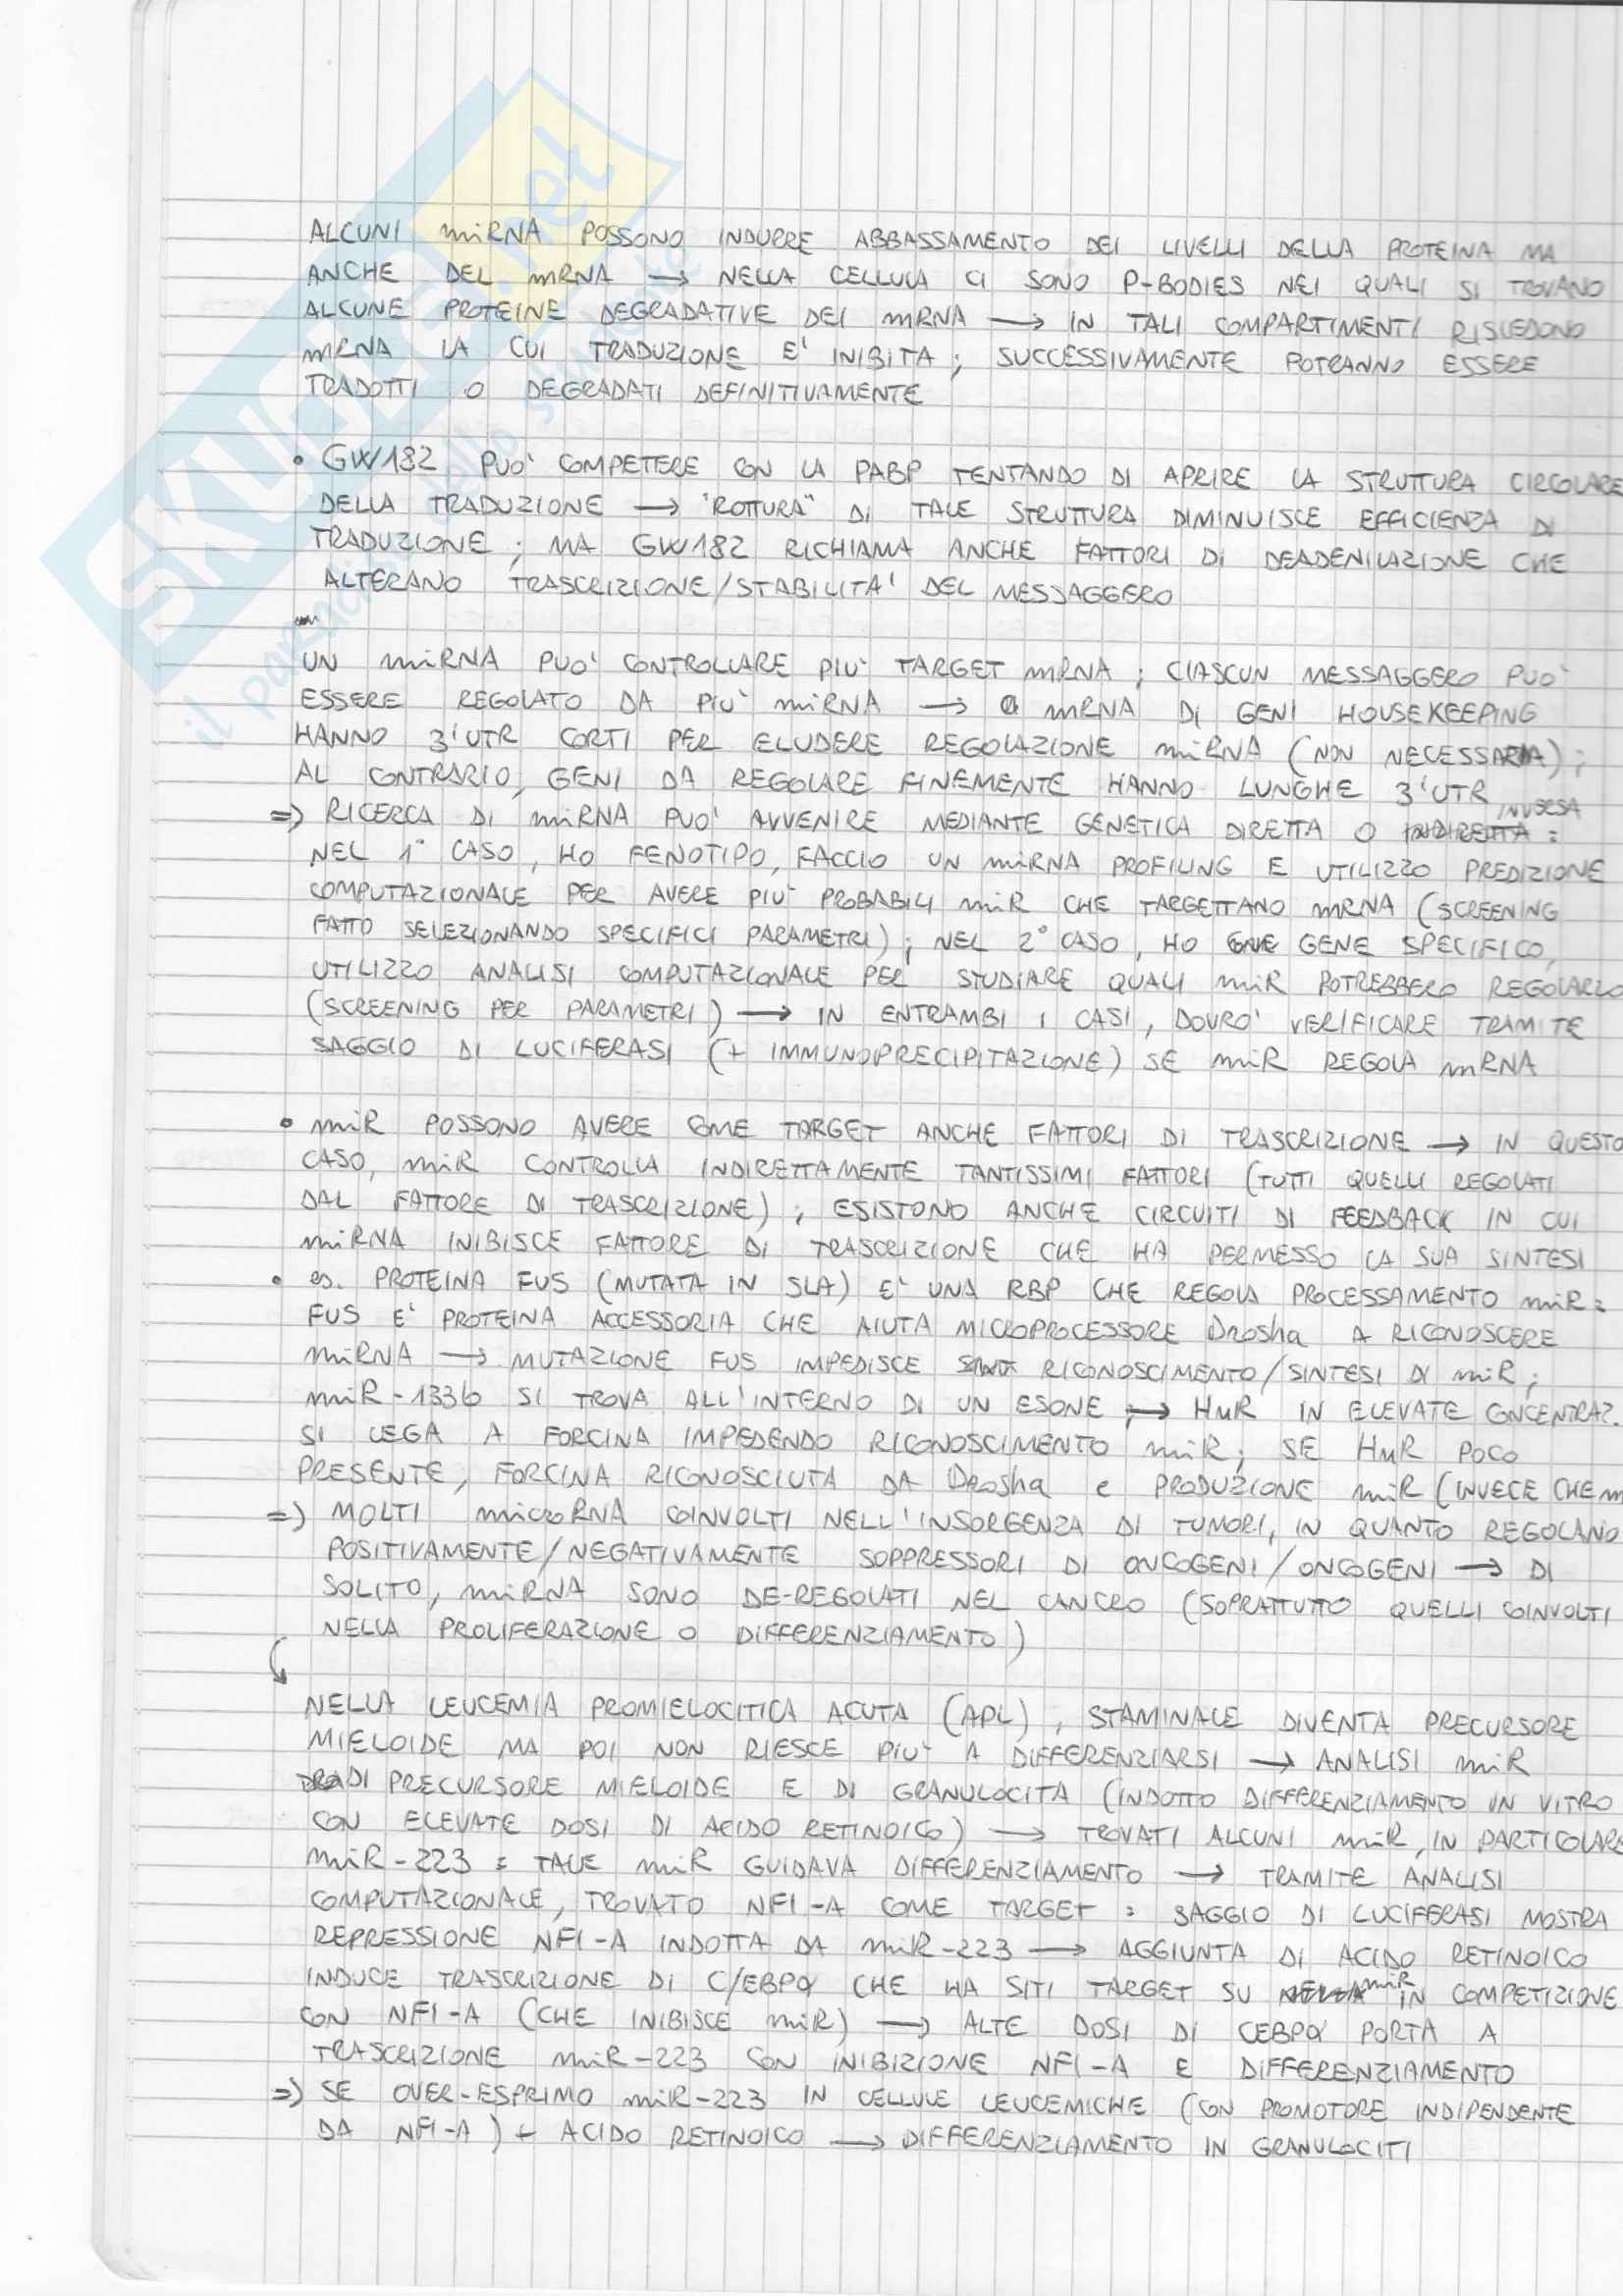 ALCUNI miRNA POSSONO INDURRE ABBASSAMENTO DEI LIVELLI DELLA PROTEINA MA
ANCHE DEL mRNA → NELLA CELLULA CI SONO P-BODIES NEI QUALI SI TROVANO
ALCUNE PROTEINE DEGRADATIVE DEI mRNA → IN TALI COMPARTIMENTI RISIEDONO
mRNA LA CUI TRADUZIONE E' INIBITA ; SUCCESSIVAMENTE POTRANNO ESSERE
TRADOTTI O DEGRADATI DEFINITIVAMENTE
• GW182 PUO' COMPETERE CON LA PABP TENTANDO DI APRIRE LA STRUTTURA CIRCOLARE
DELLA TRADUZIONE → "ROTTURA" DI TALE STRUTTURA DIMINUISCE EFFICIENZA DI
TRADUZIONE ; MA GW182 RICHIAMA ANCHE FATTORI DI DEADENILAZIONE CHE
ALTERANO TRASCRIZIONE/STABILITA' DEL MESSAGGERO
UN miRNA PUO' CONTROLLARE PIU' TARGET mRNA ; CIASCUN MESSAGGERO PUO'
ESSERE REGOLATO DA PIU' miRNA → mRNA DI GENI HOUSEKEEPING
HANNO 3'UTR CORTI PER ELUDERE REGOLAZIONE miRNA (NON NECESSARIA) ;
AL CONTRARIO, GENI DA REGOLARE FINEMENTE HANNO LUNGHE 3'UTR
=> RICERCA DI miRNA PUO' AVVENIRE MEDIANTE GENETICA DIRETTA O INVERSA :
NEL 1° CASO, HO FENOTIPO, FACCIO UN miRNA PROFILING E UTILIZZO PREDIZIONE
COMPUTAZIONALE PER AVERE PIU' PROBABILI miR CHE TARGETTANO mRNA (SCREENING
FATTO SELEZIONANDO SPECIFICI PARAMETRI) ; NEL 2° CASO, HO GENE SPECIFICO,
UTILIZZO ANALISI COMPUTAZIONALE PER STUDIARE QUALI miR POTREBBERO REGOLARLO
(SCREENING PER PARAMETRI) → IN ENTRAMBI I CASI, DOVRO' VERIFICARE TRAMITE
SAGGIO DI LUCIFERASI (+ IMMUNOPRECIPITAZIONE) SE miR REGOLA mRNA
• miR POSSONO AVERE COME TARGET ANCHE FATTORI DI TRASCRIZIONE → IN QUESTO
CASO, miR CONTROLLA INDIRETTAMENTE TANTISSIMI FATTORI (TUTTI QUELLI REGOLATI
DAL FATTORE DI TRASCRIZIONE) ; ESISTONO ANCHE CIRCUITI DI FEEDBACK IN CUI
miRNA INIBISCE FATTORE DI TRASCRIZIONE CHE HA PERMESSO LA SUA SINTESI
• es. PROTEINA FUS (MUTATA IN SLA) E' UNA RBP CHE REGOLA PROCESSAMENTO miR :
FUS E' PROTEINA ACCESSORIA CHE AIUTA MICROPROCESSORE Drosha A RICONOSCERE
miRNA → MUTAZIONE FUS IMPEDISCE RICONOSCIMENTO/SINTESI DI miR ;
miR-133b SI TROVA ALL'INTERNO DI UN ESONE → HuR IN ELEVATE CONCENTRAZ.
SI LEGA A FORCINA IMPEDENDO RICONOSCIMENTO miR ; SE HuR POCO
PRESENTE, FORCINA RICONOSCIUTA DA Drosha e PRODUZIONE miR (INVECE CHE m
=> MOLTI microRNA COINVOLTI NELL'INSORGENZA DI TUMORI, IN QUANTO REGOLANO
POSITIVAMENTE/NEGATIVAMENTE SOPPRESSORI DI ONCOGENI/ONCOGENI → DI
SOLITO, miRNA SONO DE-REGOLATI NEL CANCRO (SOPRATTUTTO QUELLI COINVOLTI
NELLA PROLIFERAZIONE O DIFFERENZIAMENTO)
NELLA LEUCEMIA PROMIELOCITICA ACUTA (APL), STAMINALE DIVENTA PRECURSORE
MIELOIDE MA POI NON RIESCE PIU' A DIFFERENZIARSI → ANALISI miR
DI PRECURSORE MIELOIDE E DI GRANULOCITA (INDOTTO DIFFERENZIAMENTO IN VITRO
CON ELEVATE DOSI DI ACIDO RETINOICO) → TROVATI ALCUNI miR, IN PARTICOLARE
miR-223 : TALE miR GUIDAVA DIFFERENZIAMENTO → TRAMITE ANALISI
COMPUTAZIONALE, TROVATO NFI-A COME TARGET : SAGGIO DI LUCIFERASI MOSTRA
REPRESSIONE NFI-A INDOTTA DA miR-223 → AGGIUNTA DI ACIDO RETINOICO
INDUCE TRASCRIZIONE DI C/EBPα CHE HA SITI TARGET SU miR IN COMPETIZIONE
CON NFI-A (CHE INIBISCE miR) → ALTE DOSI DI CEBPα PORTA A
TRASCRIZIONE miR-223 CON INIBIZIONE NFI-A E DIFFERENZIAMENTO
=> SE OVER-ESPRIMO miR-223 IN CELLULE LEUCEMICHE (CON PROMOTORE INDIPENDENTE
DA NFI-A) + ACIDO RETINOICO → DIFFERENZIAMENTO IN GRANULOCITI
SKUOLA.net
il paradiso dello studente